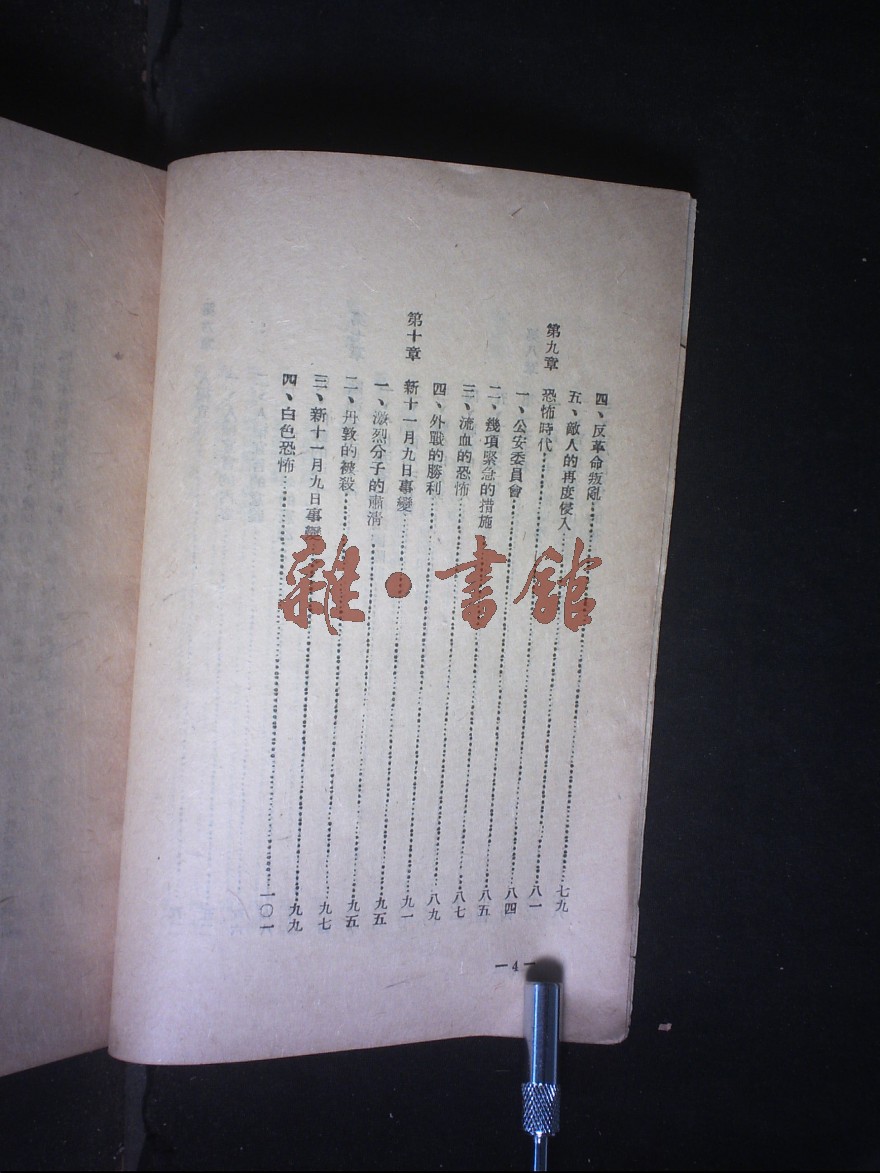 四、反革命叛亂……七九
五、敵人的再度侵入……八一
第九章 恐怖時代……八四
一、公安委員會……八五
二、幾項緊急的措施……八七
三、流血的恐怖……八九
四、外戰的勝利……九一
第十章 新十一月九日事變……九五
一、激烈分子的肅清……九五
二、丹敦的被殺……九七
三、新十一月九日事變……九九
四、白色恐怖……一〇一
—4—
雜·書館